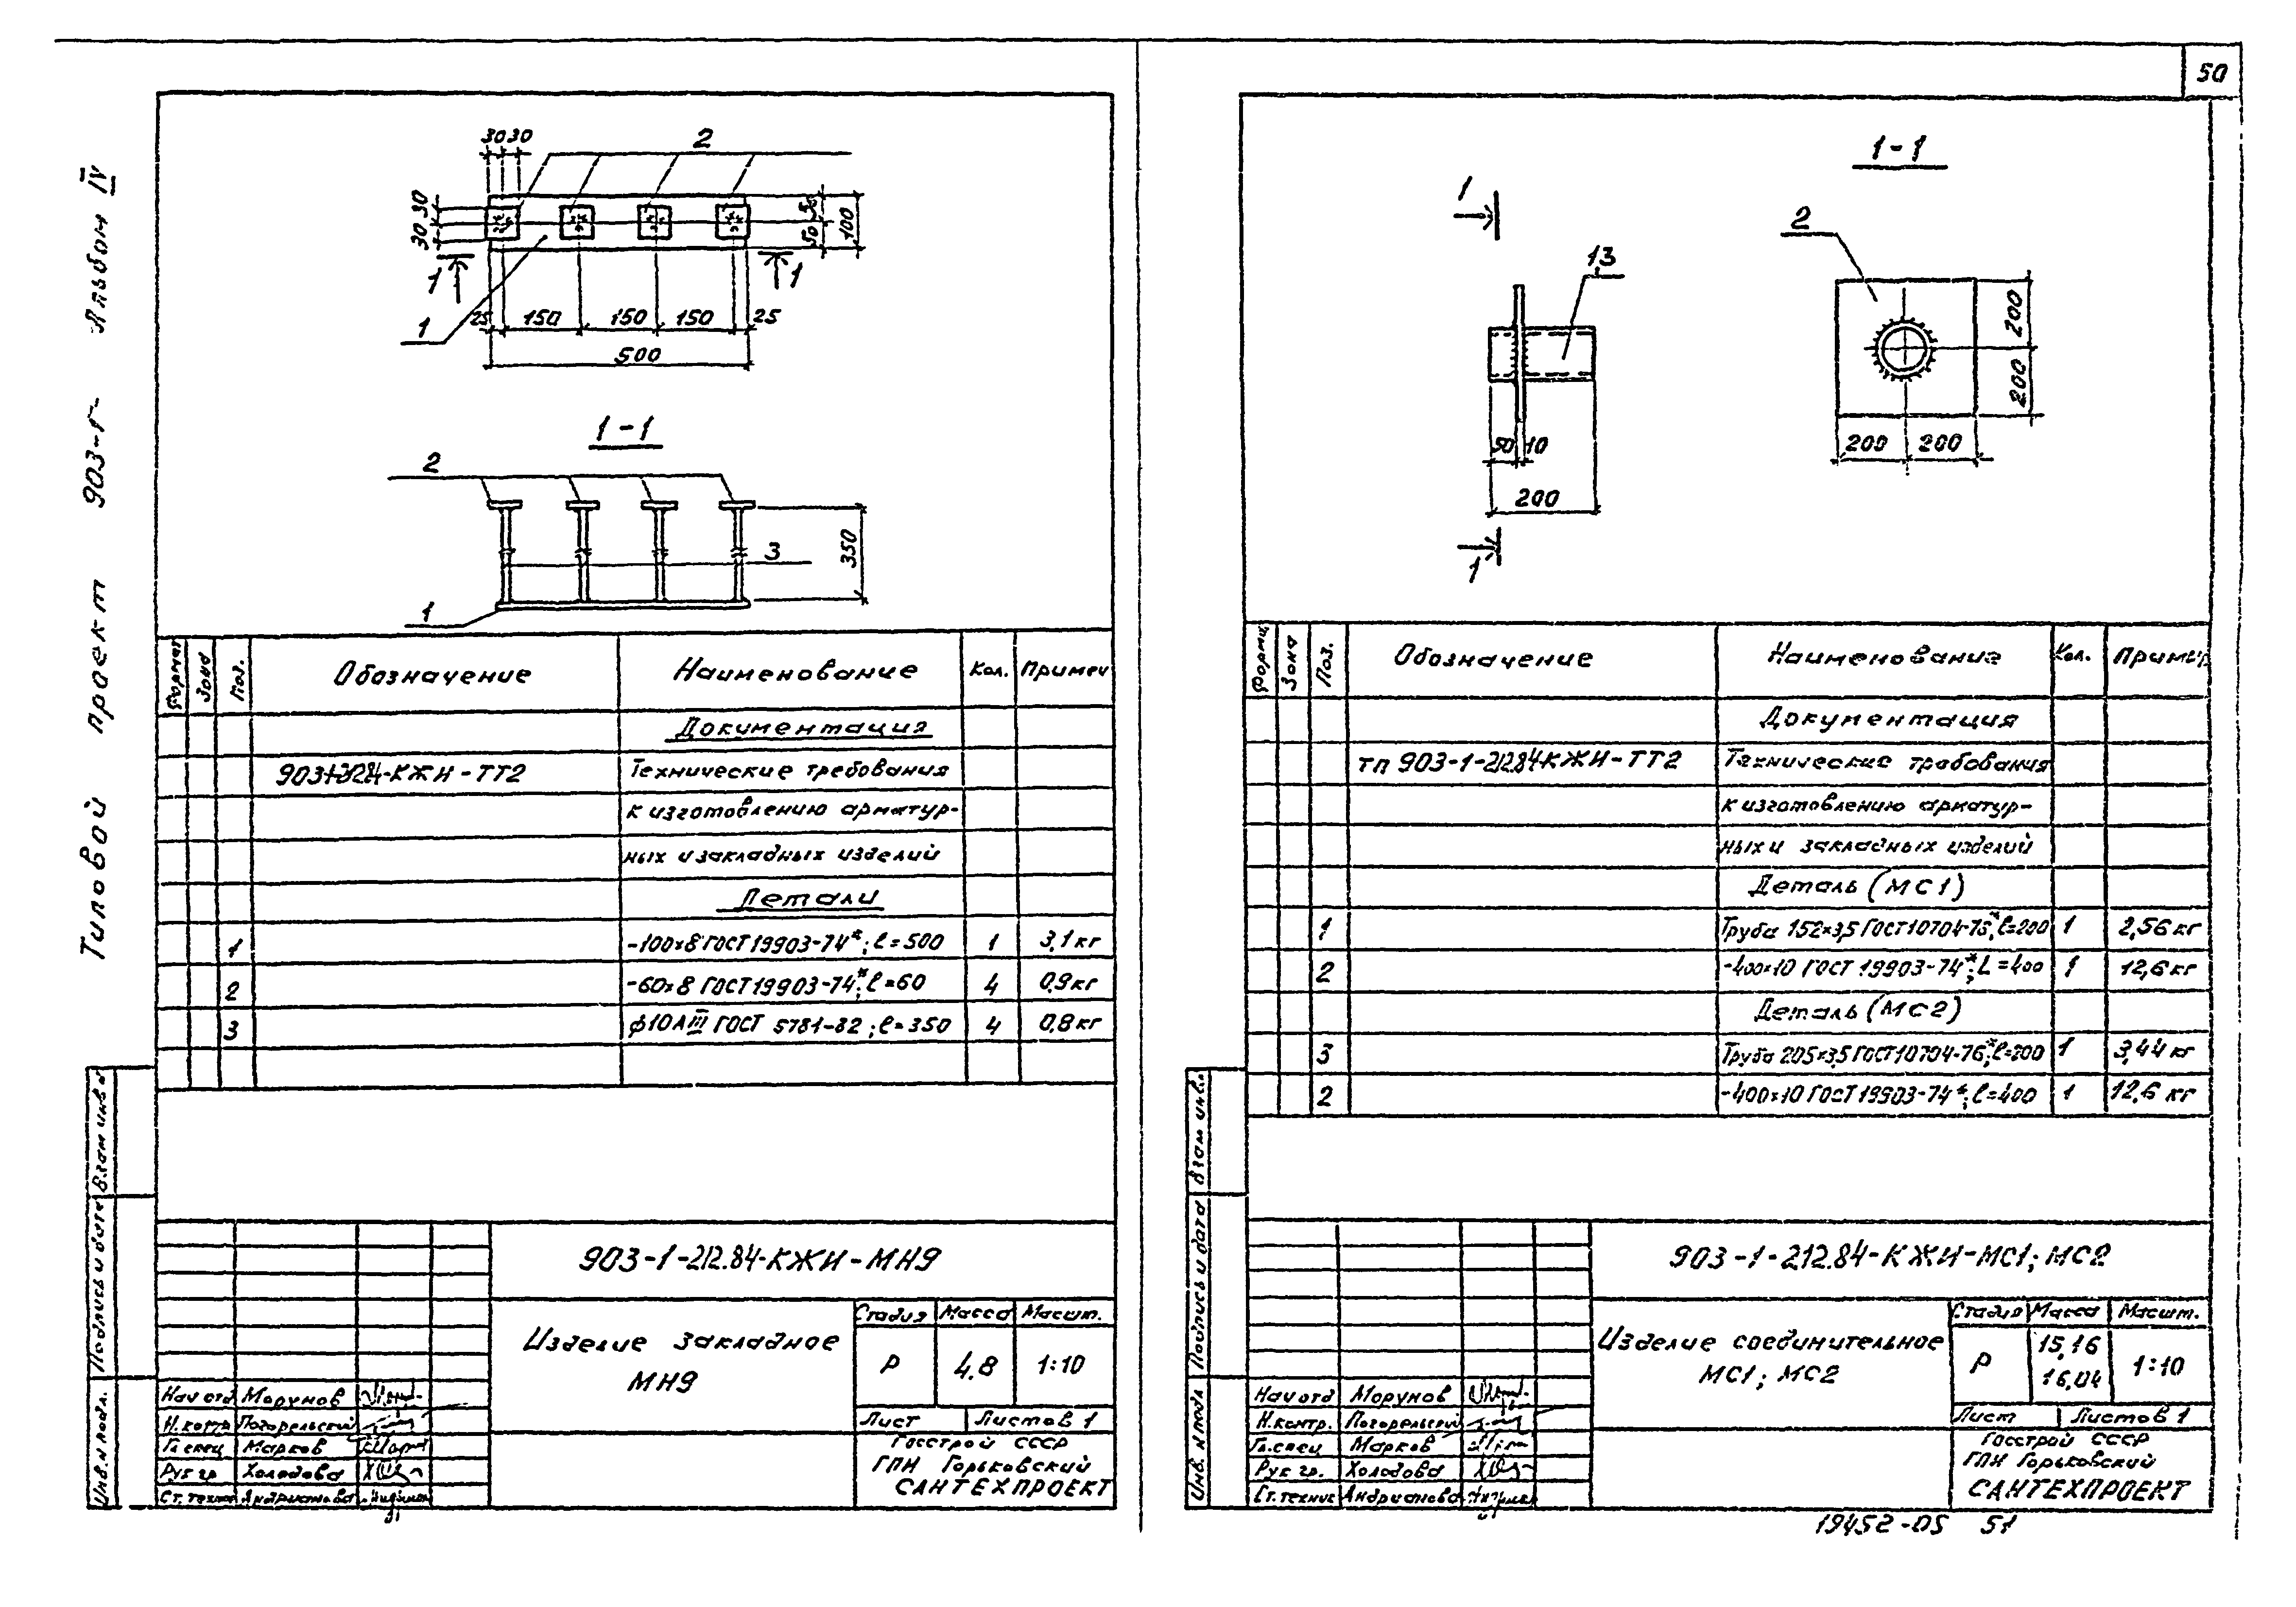 50
Типовой проект 903-1- Альбом IV
30 30
2
30 30
50 50
100
1 1
1
25 150 150 150 25
500
1-1
2
3
350
1
Формат Зона Поз. Обозначение Наименование Кол. Примеч
Документация
903-1-212.84-КЖИ-ТТ2 Технические требования
к изготовлению арматур-
ных и закладных изделий
Детали
1 -100×8 ГОСТ 19903-74*; ℓ=500 1 3,1 кг
2 -60×8 ГОСТ 19903-74*; ℓ=60 4 0,9 кг
3 ф10АIII ГОСТ 5781-82; ℓ=350 4 0,8 кг
Взам инв
Подпись и дата
Инв. N подл.
903-1-212.84-КЖИ-МН9
Изделие закладное
МН9
Стадия Масса Масшт.
Р 4.8 1:10
Лист Листов 1
Госстрой СССР
ГПИ Горьковский
САНТЕХПРОЕКТ
Нач отд Морунов
Н. контр Погорельский
Гл спец Марков
Рук гр Холодова
Ст. техник Андрианова
1-1
1
1,3
2
200
200
50 10
200
200 200
1
Формат Зона Поз. Обозначение Наименование Кол. Примеч
Документация
ТП 903-1-212.84КЖИ-ТТ2 Технические требования
к изготовлению арматур-
ных и закладных изделий
Деталь (МС1)
1 Труба 152×3,5 ГОСТ 10704-76*; ℓ=200 1 2,56 кг
2 -400×10 ГОСТ 19903-74*; L=400 1 12,6 кг
Деталь (МС2)
3 Труба 205×3,5 ГОСТ 10704-76*; ℓ=200 1 3,44 кг
2 -400×10 ГОСТ 19903-74*; ℓ=400 1 12,6 кг
Взам инв.
Подпись и дата
Инв. N подл
903-1-212.84-КЖИ-МС1; МС2
Изделие соединительное
МС1; МС2
Стадия Масса Масшт.
Р 15,16 1:10
16,04
Лист Листов 1
Госстрой СССР
ГПИ Горьковский
САНТЕХПРОЕКТ
Нач отд Морунов
Н. контр. Погорельский
Гл. спец Марков
Рук гр. Холодова
Ст. техник Андрианова
19452-05 51